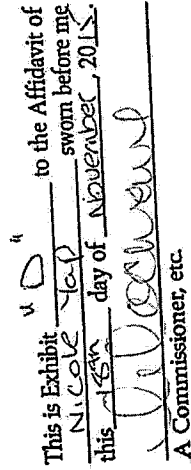 This is Exhibit "D" to the Affidavit of
Nicole Yap sworn before me
this day of November, 20
A Commissioner, etc.